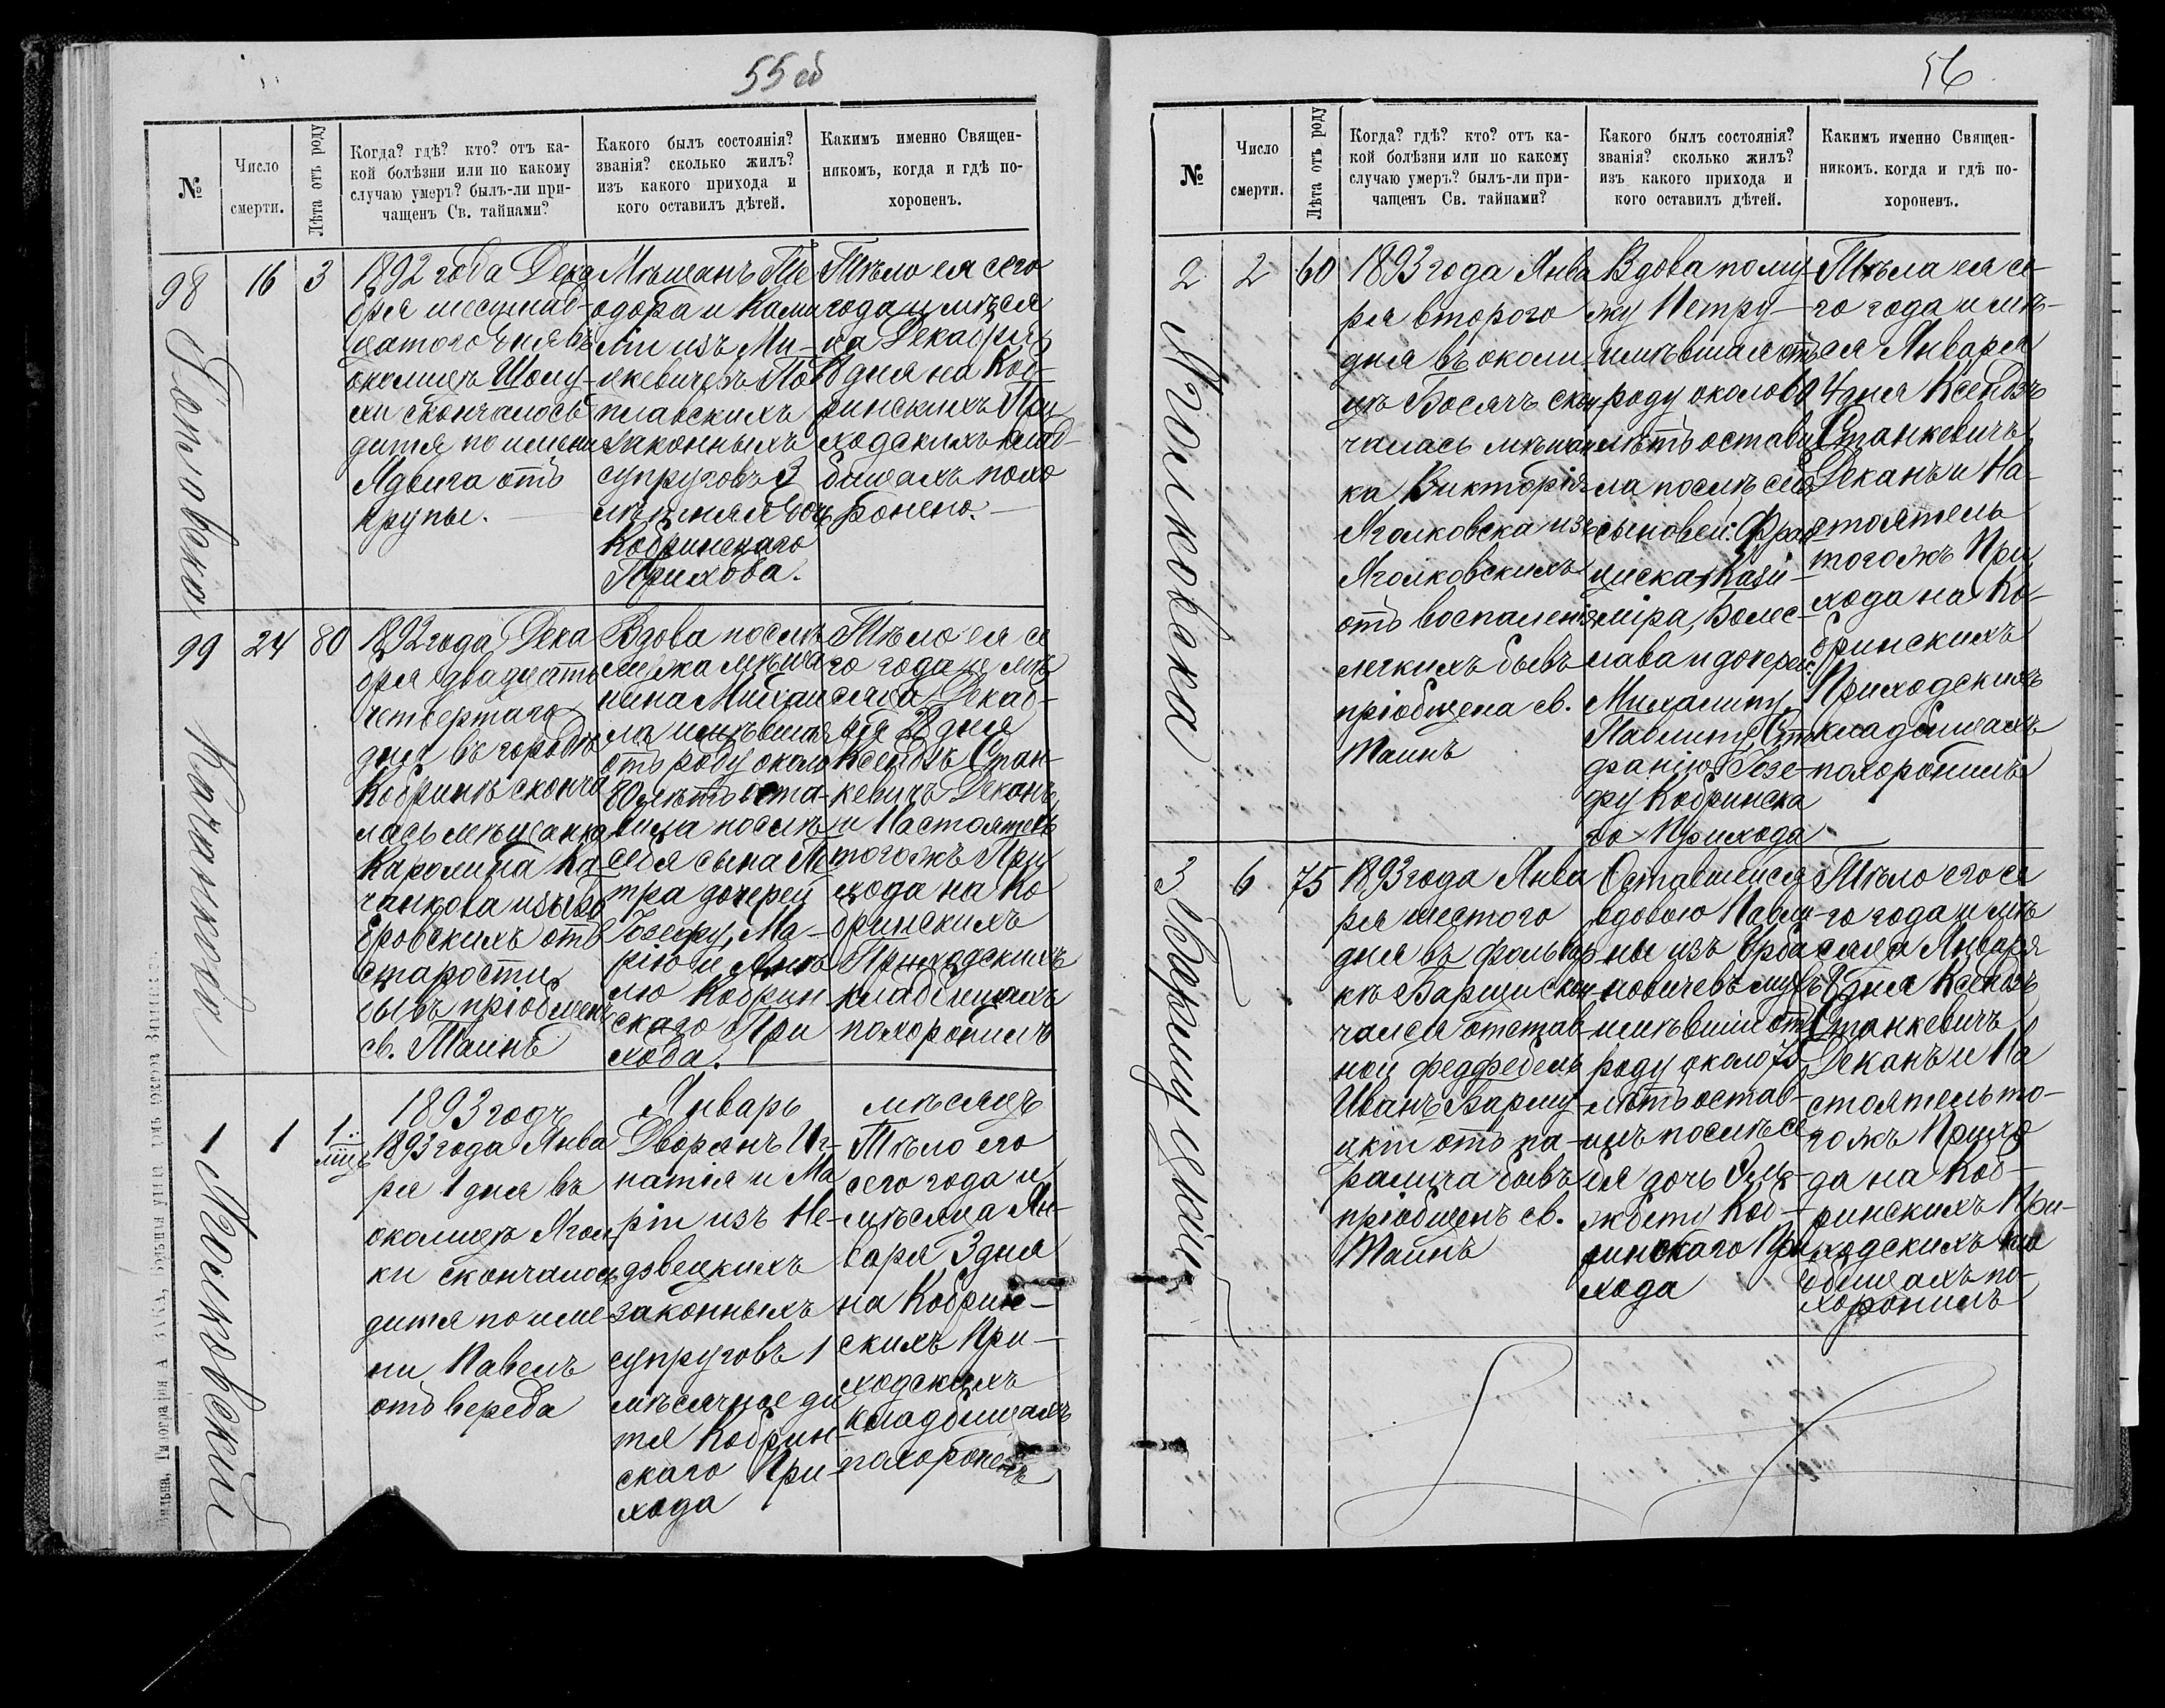 55 об
№
Число
смерти.
Лѣта отъ роду
Когда? гдѣ? кто? отъ ка-
кой болѣзни или по какому
случаю умеръ? былъ-ли при-
чащенъ Св. тайнами?
Какого былъ состоянія?
званія? сколько жилъ?
изъ какого прихода и
кого оставилъ дѣтей.
Какимъ именно Священ-
никомъ, когда и гдѣ по-
хороненъ.
98
16
3
1892 года Дека
бря шестнад-
цатого дня въ
околицѣ Шолу-
хи скончалось
дитя по имени
Ядвига отъ
крупы.
Мѣщанъ Те
одора и Ками
ліи изъ Ми-
цкевичевъ По
плавскихъ
законныхъ
супруговъ 3
лѣтняя дочь
Кобринскаго
Прихода.
Тѣло ея сего
года и мѣся
ца Декабря
18 дня на Коб-
ринскихъ При
ходскихъ клад-
бищахъ похо
ронено.
99
24
80
1892 года Дека
бря двадцать
четвертаго
дня въ городѣ
Кобринѣ сконча
лась мѣщанка
Каролина Ка
чанкова
бровскихъ отъ
старости
бывъ пріобщен
св. Таинъ
Качанкова
Вдова послѣ
мужа мѣща
нина Михаи
ла имѣвшая
отъ роду около
80 лѣтъ оста-
вила послѣ
себя сына Пе
тра дочерей
Іозефу, Ма-
рію и
лю Кобрин
скаго При
хода.
Тѣло ея се
го года и мѣ
сяца Декаб-
ря 28 дня
Ксендзъ Стан-
кевичъ Деканъ
и Настоятель
тогожъ При
хода на Ко
бринскихъ
Приходскихъ
кладбищахъ
похоронилъ
1893 годъ Январь мѣсяцъ
1
1
1
мѣс
Яголковскій
1893 года Янва
ря 1 дня въ
околицѣ Ягол
ки скончалось
дитя по име
ни Павелъ
отъ вереда
Дворянъ Иг-
натія и Ма
ріи изъ Не-
двецкихъ
законныхъ
супруговъ 1
мѣсячное ди
тя Кобрин-
скаго При-
хода
Тѣло его
сего года и
мѣсяца Ян-
варя 3 дня
на Кобрин-
скихъ При-
ходскихъ
кладбищахъ
похороненъ
56
№
Число
смерти.
Лѣта отъ роду
Когда? гдѣ? кто? отъ ка-
кой болѣзни или по какому
случаю умеръ? былъ-ли при-
чащенъ Св. тайнами?
Какого былъ состоянія?
званія? сколько жилъ?
изъ какого прихода и
кого оставилъ дѣтей.
Какимъ именно Священ-
никомъ. когда и гдѣ по-
хороненъ.
2
2
60
Яголковска
1893 года Янва
ря второго
дня въ околи-
цѣ Босячъ скон
чалась мѣщан
ка Викторія
Яголковска изъ
Яголковскихъ
отъ воспаленія
легкихъ бывъ
пріобщена св.
Таинъ
Вдова по му-
жу Петру
имѣвшая отъ
роду около 60
лѣтъ остави
ла послѣ себя
сыновей: Фран
циска, Кази-
міра, Болес-
лава и дочерей:
Михалину,
Павлину, Сте
фанію, Іозе-
фу Кобринска
го Прихода
Тѣла ея се-
го года и мѣ-
сяя Января
4 дня Ксендзъ
Станкевичъ
Деканъ и На-
стоятель
тогожъ При
хода на Ко-
бринскихъ
Приходскихъ
кладбищахъ
похоронилъ
3
6
75
1893 года Янва
ря шестого
дня въ фольвар
кѣ Барщи скон
чался отстав-
ной федфебель
Иванъ Барщу
цкій отъ па-
ралича бывъ
пріобщенъ св.
Таинъ
Оставшейся
вдовою Павли-
ны изъ Урба
новичевъ мужъ
имѣвшій отъ
роду около 75
лѣтъ остав-
илъ послѣ се
бя дочь Эль-
жбету Коб-
ринскаго При
хода
Тѣло его се
го года и мѣ
сяца Января
8 дня Ксендзъ
Станкевичъ
Деканъ и На
стоятель то-
гожъ Прихо
да на Коб-
ринскихъ При-
ходскихъ кла
дбищахъ по-
хоронилъ